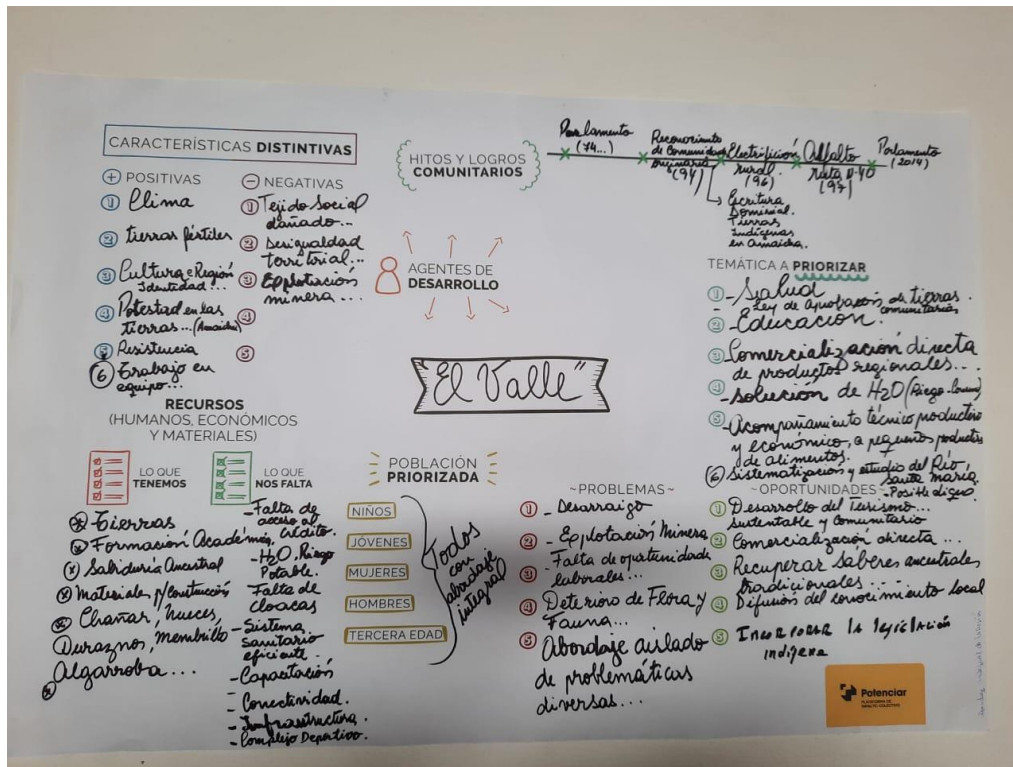 CARACTERÍSTICAS DISTINTIVAS
+ POSITIVAS
1 Clima
2 tierras fértiles
3 Cultura e Región
Identidad...
4 Potestad en las
tierras... (Amaicha)
5 Resistencia
6 Trabajo en
equipo...
- NEGATIVAS
1 Tejido Social
dañado...
2 Desigualdad
territrial...
3 Explotación
minera...
4
5
HITOS Y LOGROS
COMUNITARIOS
Parlamento
(74...)
Reconocimiento
de Comunidades
originarias
(94)
Electrificación
rural.
(96)
Escritura
Dominial.
Tierras
Indígenas
en Amaicha.
Asfalto
ruta N-40
(97)
Parlamento
(2014)
AGENTES DE
DESARROLLO
"El Valle"
TEMÁTICA A PRIORIZAR
1 - Salud
- Ley de aprobación de tierras
comunitarias
2 - Educación.
3 Comercialización directa
de productos regionales...
4 - solución de H2O (Riego-
5 - Acompañamiento técnico productivo
y económico, a pequeños productores
de alimentos.
6 Sistematización y estudio del Río
Santa María.
- Posible dique.
RECURSOS
(HUMANOS, ECONÓMICOS
Y MATERIALES)
LO QUE
TENEMOS
Tierras
Formación Académica
Sabiduría Ancestral
Materiales p/construcción
Chañar, nueces,
Durazno, membrillo
Algarroba...
LO QUE
NOS FALTA
- Falta de
acceso al
crédito.
- H2O. Riego
Potable.
- Falta de
cloacas
- Sistema
sanitario
eficiente.
- Capacitación
- Conectividad.
- Infraestructura.
- Complejo Deportivo.
POBLACIÓN
PRIORIZADA
NIÑOS
JÓVENES
MUJERES
HOMBRES
TERCERA EDAD
Todos
con
abordaje
integral
~PROBLEMAS~
1 - Desarraigo
2 - Explotación Minera
3 - Falta de oportunidade
laborales...
4 Deterioro de Flora y
Fauna...
5 Abordaje aislado
de problemáticas
diversas...
~OPORTUNIDADES~
1 Desarrollo del Turismo...
sustentable y comunitario
2 Comercialización directa...
3 Recuperar saberes ancestrales
tradicionales...
4 Difusión del conocimiento local
5 INCORPORAR la legislación
indígena
Potenciar
PLATAFORMA DE
IMPACTO COLECTIVO